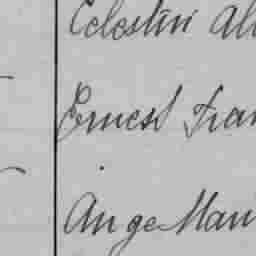 Celestin Al
Ernest Fran
Ange Mau